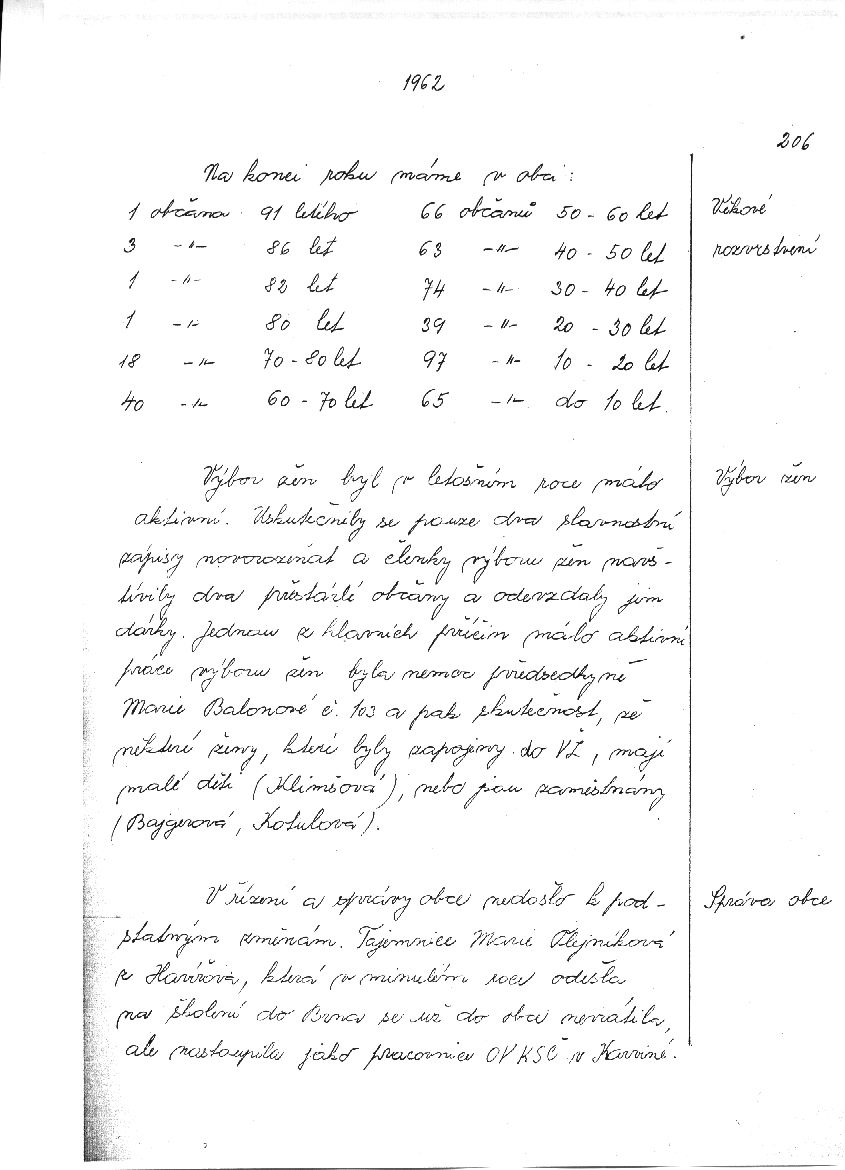 1962
206
Na konci roku máme v obci:
1 občana 91 letého 66 občanů 50-60 let Věkové
3 -"- 86 let 63 -"- 40-50 let rozvrstvení
1 -"- 82 let 74 -"- 30-40 let
1 -"- 80 let 39 -"- 20-30 let
18 -"- 70-80 let 97 -"- 10-20 let
40 -"- 60-70 let 65 -"- do 10 let.
Výbor žen byl v letošním roce málo Výbor žen
aktivní. Uskutečnily se pouze dva slavnostní
zápisy novorozeňat a členky výboru žen navš-
tívily dva přestárlé občany a odevzdaly jim
dárky. Jednou z hlavních příčin málo aktivní
práce výboru žen byla nemoc předsedkyně
Marie Balonové č. 103 a pak skutečnost, že
některé ženy, které byly zapojeny do VŽ, mají
malé děti (Klimšová), nebo jsou zaměstnány
(Bajgerová, Kotulová).
V řízení a správy obce nedošlo k pod- Správa obce
statným změnám. Tajemnice Marie Olejníková
z Havířova, která v minulém roce odešla
na školení do Brna se už do obce nevrátila,
ale nastoupila jako pracovnice OV KSČ v Karviné.